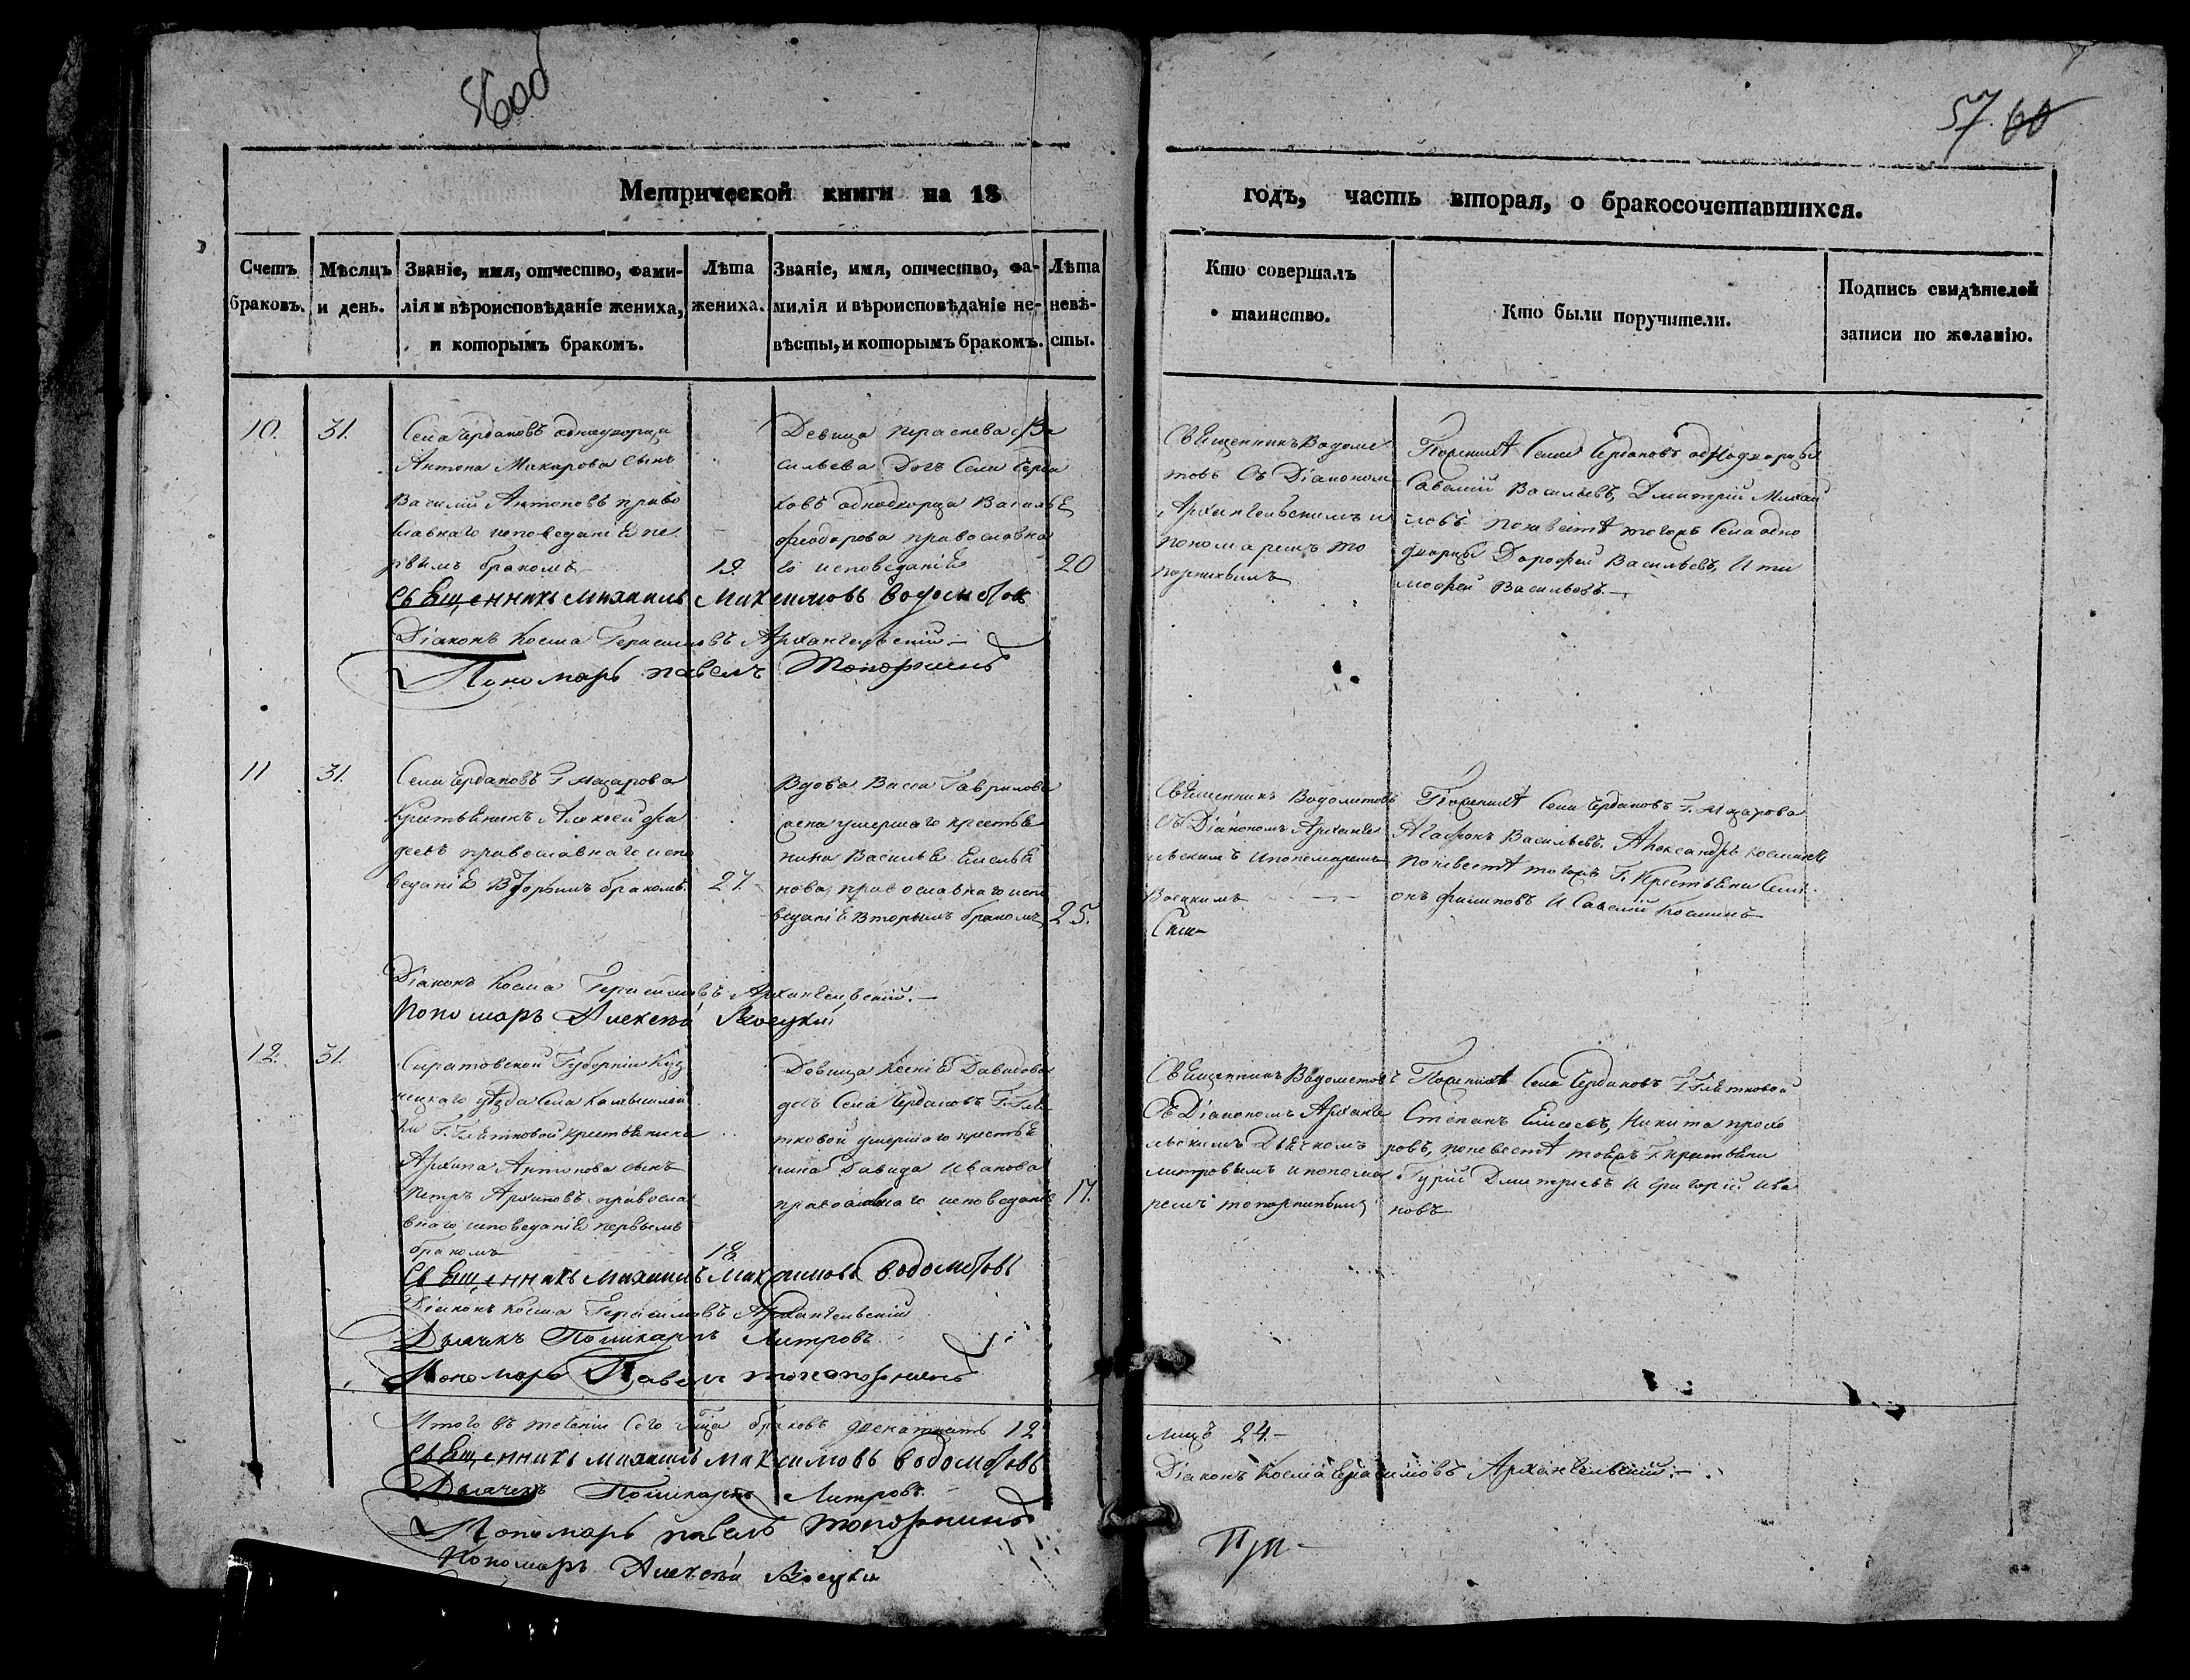 57. 60
Метрической книги на 18
годъ, часть вторая, о бракосочетавшихся.
Счетъ браковъ.
Мѣсяцъ и день.
Званіе, имя, отчество, фами-
лія и вѣроисповѣданіе жениха,
и которымъ бракомъ.
Лѣта
жениха.
Званіе, имя, отчество, фа-
милія и вѣроисповѣданіе не-
вѣсты, и которымъ бракомъ.
Лѣта
невѣ-
сты.
Кто совершалъ
таинство.
Кто были поручители.
Подпись свидѣтелей
записи по желанію.
10.
31.
Села Чердаковъ однодворца
Антона Макарова сынъ
Василий Антоновъ право
славнаго исповеданіе пе
рвымъ бракомъ
19.
Девица Ва
сильева дочъ Села Черда
ковъ однодворца Василье
Феодорова православна
го исповеданіе
20
Священникъ Водоме
товъ Съ Діакономъ
Архангельскимъ и
пономаремъ то
порнинымъ
Села Чердаковъ однодворцы
Савелий Васильевъ, Дмитрий Михай
ловъ тогожъ Села одно
дворцы Дорофей Васильевъ, И ти
мофей Васильевъ
Священникъ Михаилъ Максимовъ Водометовъ
Діаконъ Косма Герасимовъ Архангельский
Пономарь павелъ Топорнинъ
11
31.
Села Чердаковъ Г. Мазарова
Крестьенинъ Алексей Фа
деевъ православнаго испо
веданіе Вторымъ бракомъ.
27.
Вдова Васса Гаврилова
жена умершаго крестье
нина Василье Емелье
нова, православнаго испо
веданіе Вторымъ бракомъ
25.
Священникъ Водометовъ
Съ Діакономъ Архангел
ьскимъ и пономаремъ
Села Чердаковъ Г. Мазарова
Агафонъ Васильевъ, Александръ Косминъ
тогожъ Г. Крестьени Сими
онъ Филиповъ И Савелий Косминъ
Діаконъ Косма Герасимовъ Архангельский.
Пономаръ Алексей
12.
31.
Саратовской Губерніи Куз
нецкаго уѣзда Села
Крестьенина
Архипа Антонова сынъ
Петръ Архиповъ правосла
внаго исповеданіе первымъ
бракомъ
18
Девица Ксеніе Давидова
дочъ Села Чердаковъ
умершаго крестье
нина Давида Иванова
православнаго исповеданіе
17.
Священникъ Водометовъ
Съ Діакономъ Арханге
льскимъ Дьячкомъ
митровымъ и понома
ремъ топорнинымъ
Села Чердаковъ
Степанъ Елисеевъ, Никита прохо
ровъ, крестьени
Гурий Дмитриевъ И Григорий Ива
новъ
Священникъ Михаилъ Максимовъ Водометовъ
Діаконъ Косма Герасимовъ Архангельский
Дьячекъ Поликарпъ Митровъ
Пономарь Павелъ топорнинъ
Итого въ течении сего м-ца браковъ двенатцать 12
лицъ 24.
Священникъ Михаилъ Максимовъ Водометовъ
Діаконъ Косма Герасимовъ Архангельский.
Дьячекъ Поликарпъ Митровъ
Пономарь павелъ топорнинъ
Пономаръ Алексей